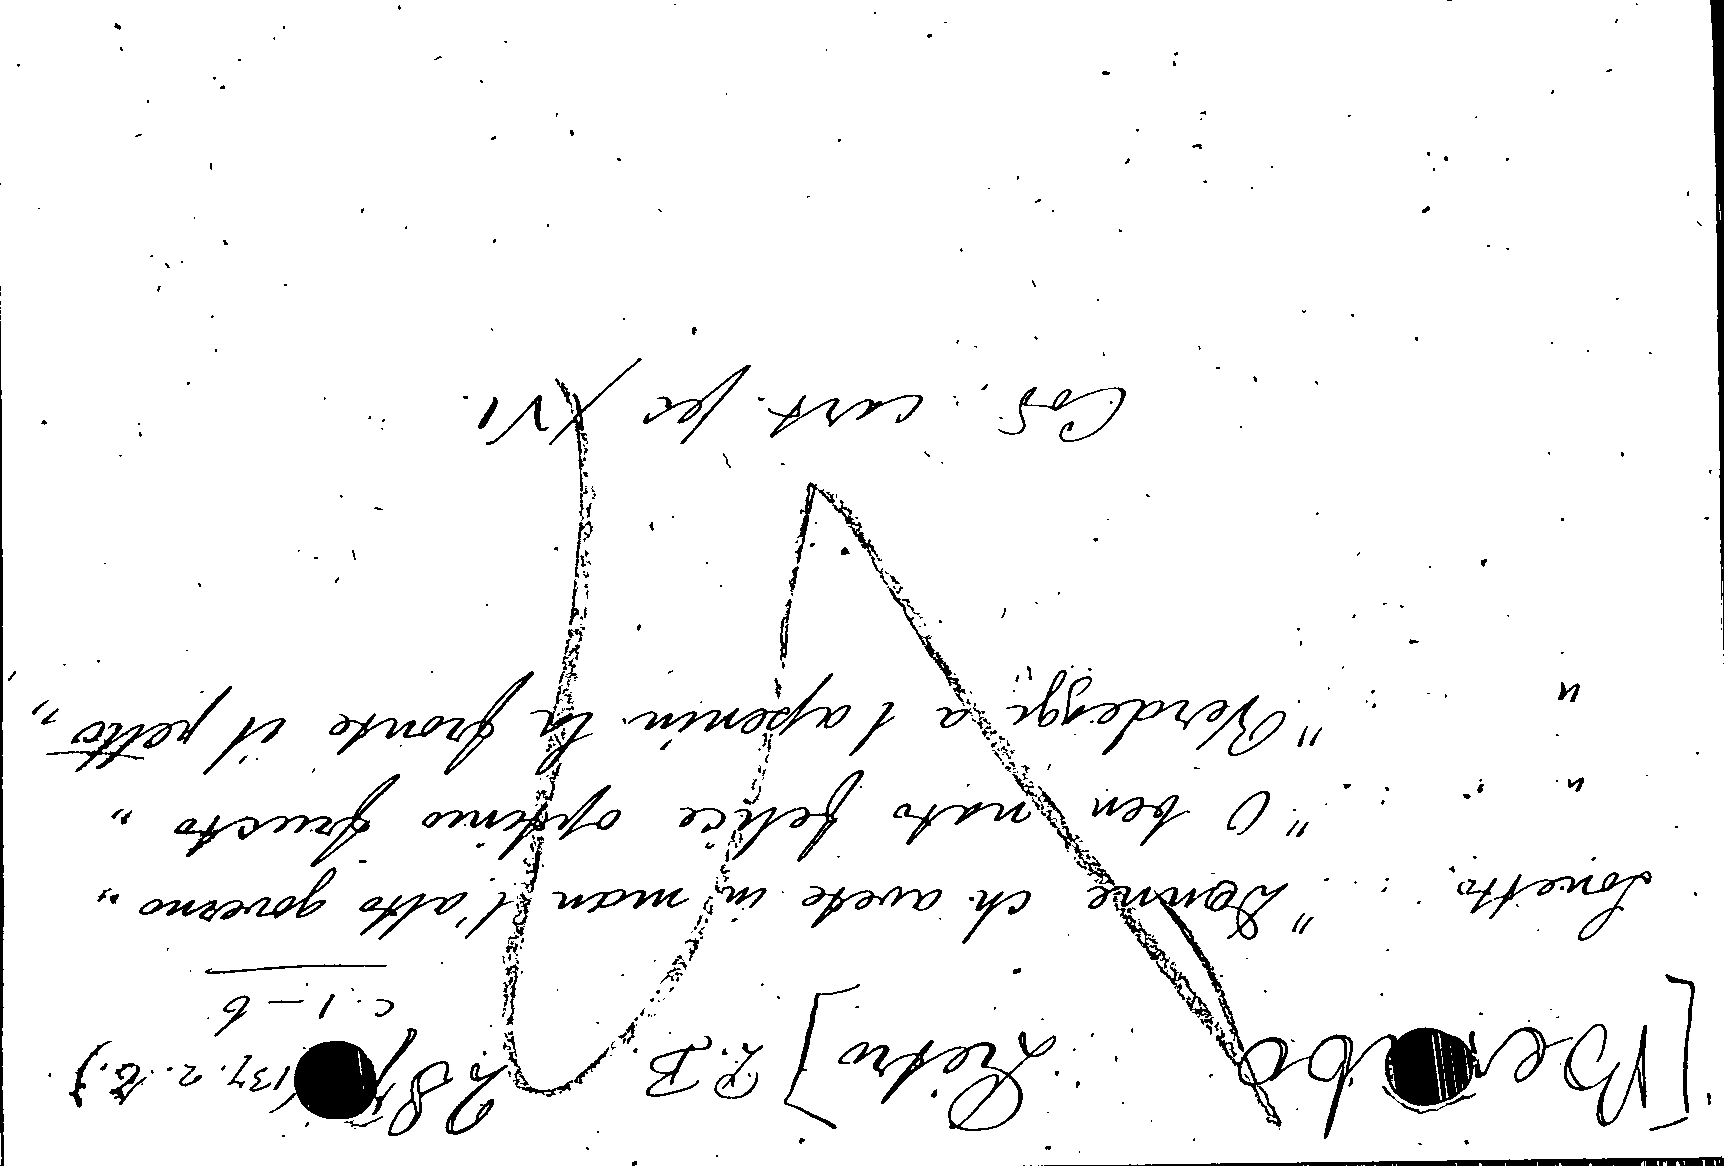 [Bembo Pietro] P.B. 287 (137. 2. B.)
c. 1-6
Sonetto. : "Donne ch avete in man l'alto governo"
" " : "O ben nato felice optimo fructo"
" : "Verdeggi a l apenin la fronte il petto"
Cod. cart. sec XVI.